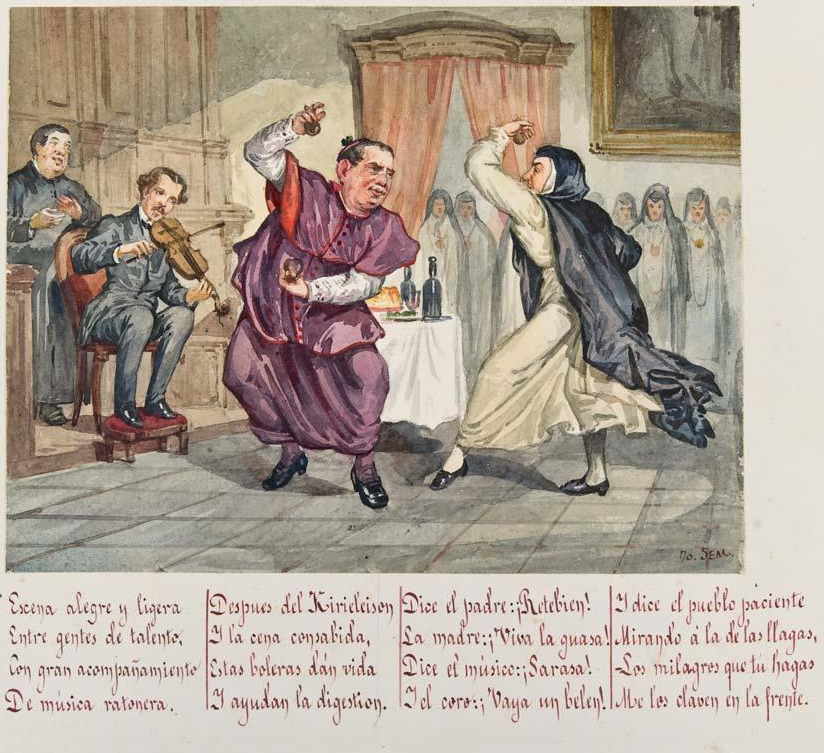 70. SEM.
Escena alegre y ligera
Entre gentes de talento,
Con gran acompañamiento
De música ratonera.
Despues del Kirieleison
Y la cena consabida,
Estas boleras dán vida
Y ayudan la digestion.
Dice el padre:¡Retebien!
La madre:¡Viva la guasa!
Dice el músico:¡Sarasa!
Y el coro:¡Vaya un belen!
Y dice el pueblo paciente
Mirando á la de las llagas,
-Los milagros que tú hagas
Me los claven en la frente.